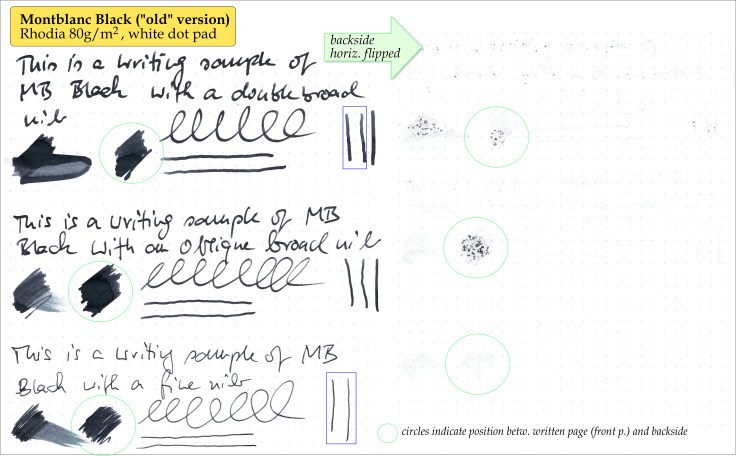 Montblanc Black ("old" version)
Rhodia 80g/m², white dot pad
backside
horiz. flipped
This is a writing sample of
MB Black with a double broad
nib
This is a writing sample of MB
Black with an oblique broad nib
This is a writing sample of MB
Black with a fine nib
circles indicate position betw. written page (front p.) and backside